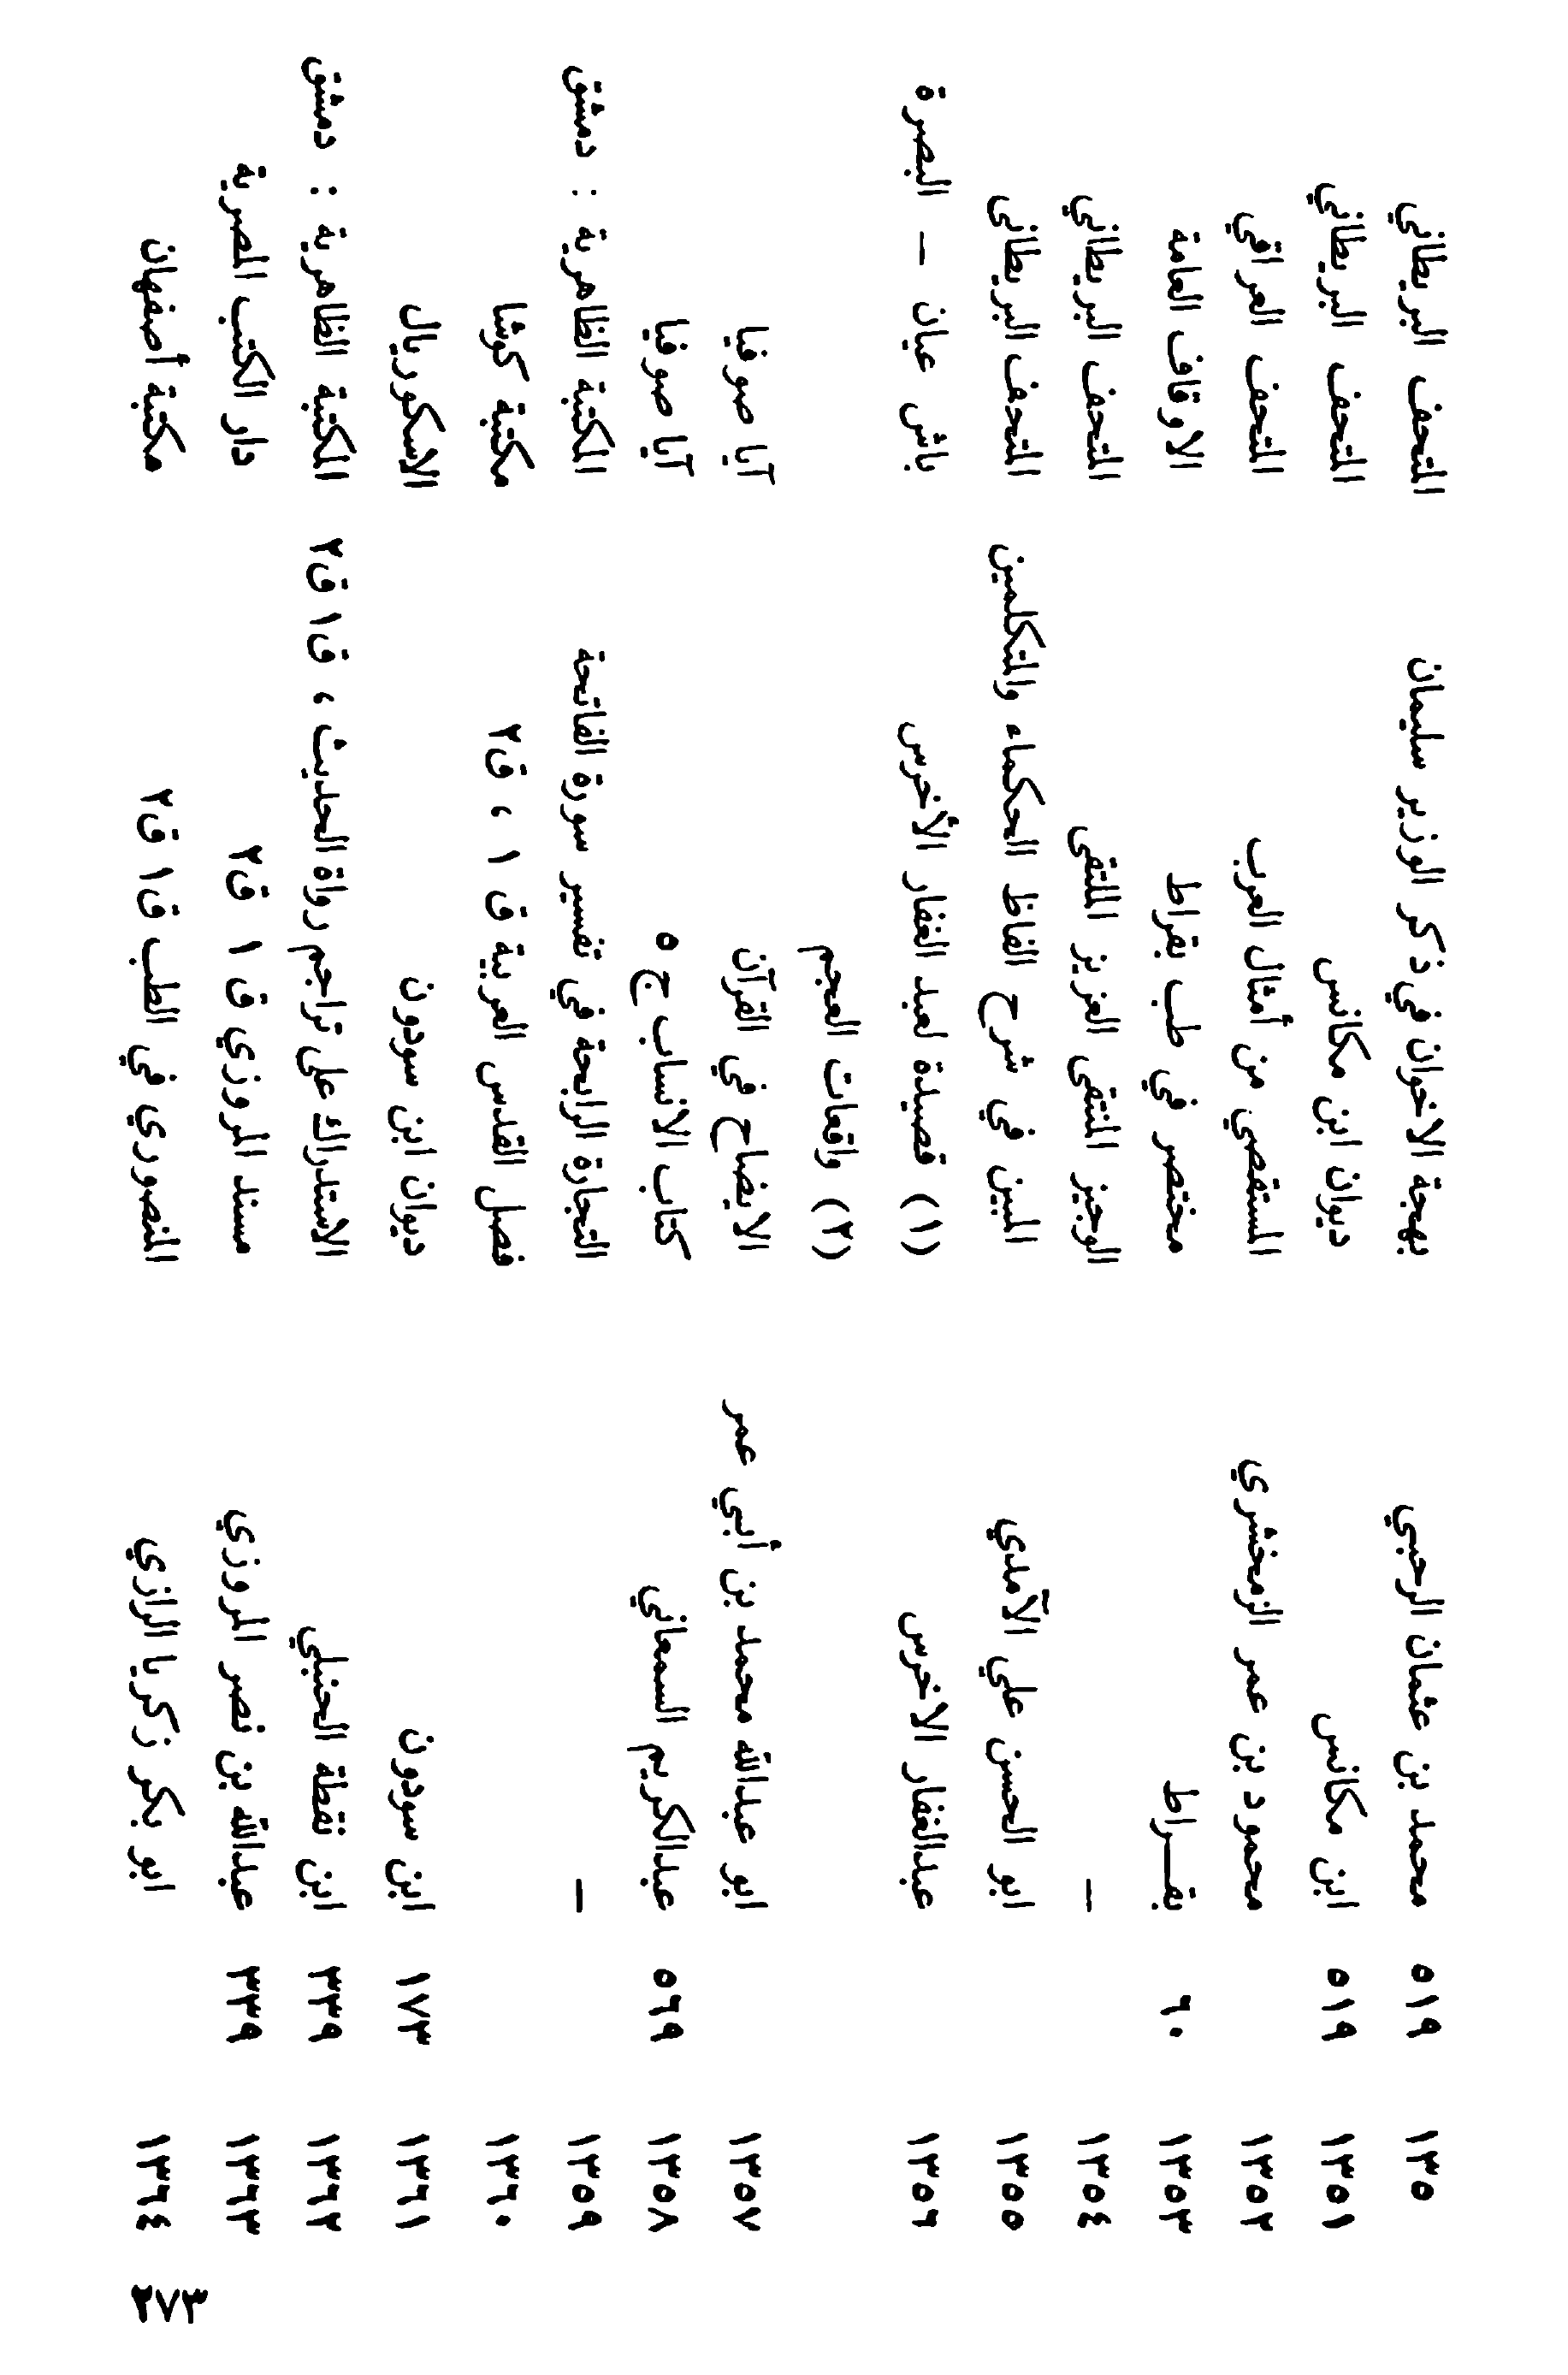 ١٣٥ ٥١٩ محمد بن عثمان الرحبي بهجة الاخوان في ذكر الوزير سليمان المتحف البريطاني
١٣٥١ ٥١٩ ابن مكانس ديوان ابن مكانس المتحف البريطاني
١٣٥٢ محمود بن عمر الزمخشري المستقصي من أمثال العرب المتحف العراقي
١٣٥٣ ٦٠ بقـــراط مختصر في طب بقراط الاوقاف العامة
١٣٥٤ – الوجيز المنتقى العزيز الملتقى المتحف البريطاني
١٣٥٥ ابو الحسن علي الآمدي المبين في شرح الفاظ الحكماء والمتكلمين المتحف البريطانى
١٣٥٦ عبدالغفار الاخرس (١) قصيدة لعبد الغفار الأخرس باش عيان – البصرة
(٢) واقعات العجم
١٣٥٧ ابو عبدالله محمد بن أبي عمر الايضاح في القرآن آيا صوفيا
١٣٥٨ ٥٦٩ عبدالكريم السمعاني كتاب الانساب ج ٥ آيا صوفيا
١٣٥٩ – التجارة الرابحة في تفسير سورة الفاتحة المكتبة الظاهرية : دمشق
١٣٦٠ فصل القدس العربية ق ١ ، ق٢ مكتبة كوشا
١٣٦١ ١٧٣ ابن سودون ديوان ابن سودون الاسكوريال
١٣٦٢ ٣٣٩ ابن نقطة الحنبلي الاستدراك على تراجم رواة الحديث ، ق١ ق٢ المكتبة الظاهرية : دمشق
١٣٦٣ ٣٣٩ عبدالله بن نصر المروزي مسند المروزي ق ١ ق٢ دار الكتب المصرية
١٣٦٤ ابو بكر زكريا الرازي المنصوري في الطب ق١ ق٢ مكتبة أصفهان
٢٧٣